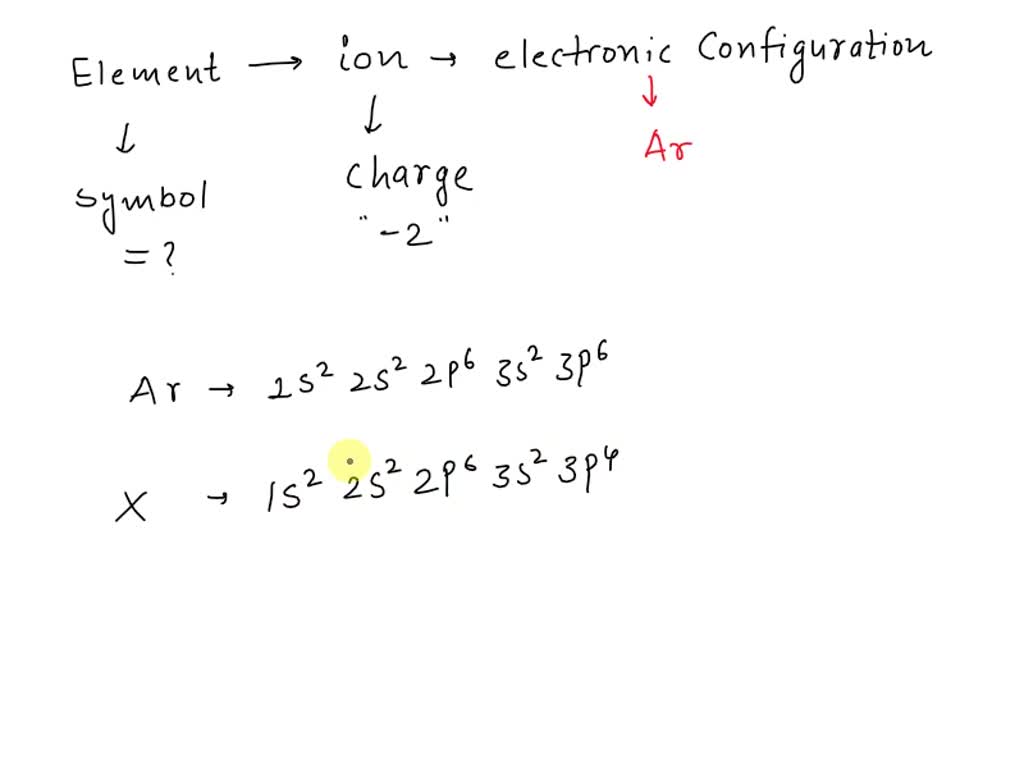 Element → ion → electronic Configuration
↓ ↓ ↓
symbol charge Ar
= ? "-2"
Ar → 1s² 2s² 2p⁶ 3s² 3p⁶
X → 1s² 2s² 2p⁶ 3s² 3p⁴